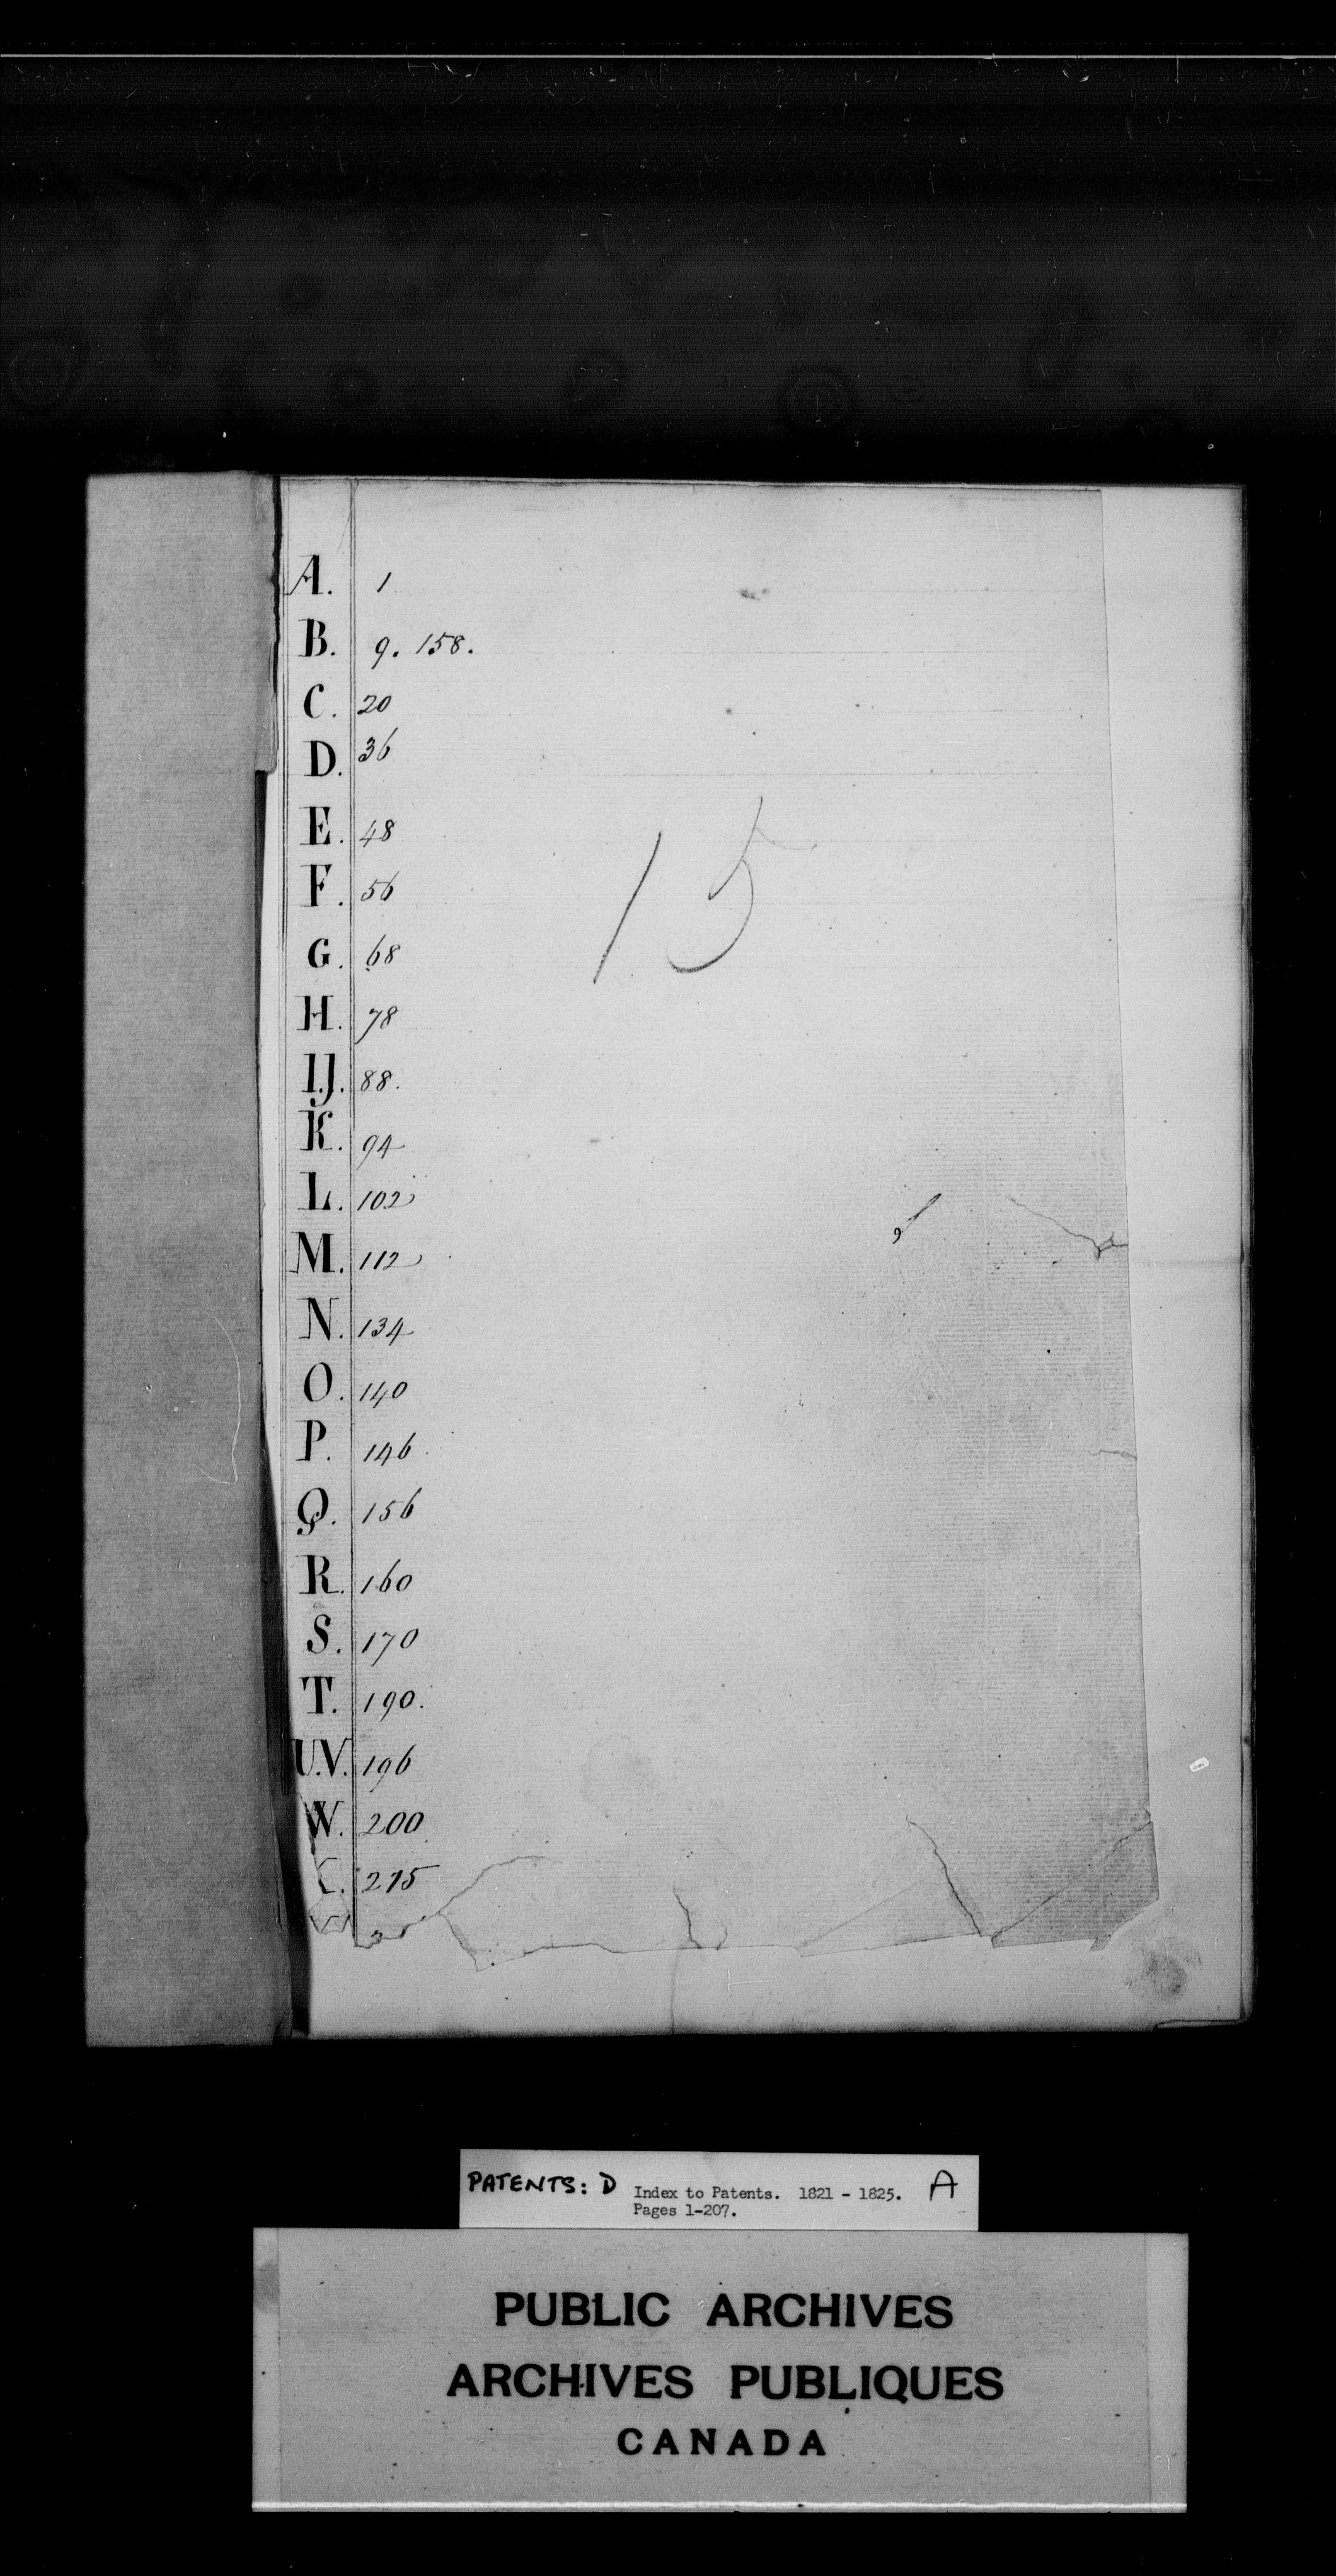 A. 1
B. 9. 158.
C. 20
D. 36
E. 48
F. 56
15
G. 68
H. 78
I.J. 88.
K. 94
L. 102
M. 112
N. 134
O. 140
P. 146
Q. 156
R. 160
S. 170
T. 190.
U.V. 196
W. 200
215
PATENTS: D Index to Patents. 1821 - 1825. A
Pages 1-207.
PUBLIC ARCHIVES
ARCHIVES PUBLIQUES
CANADA